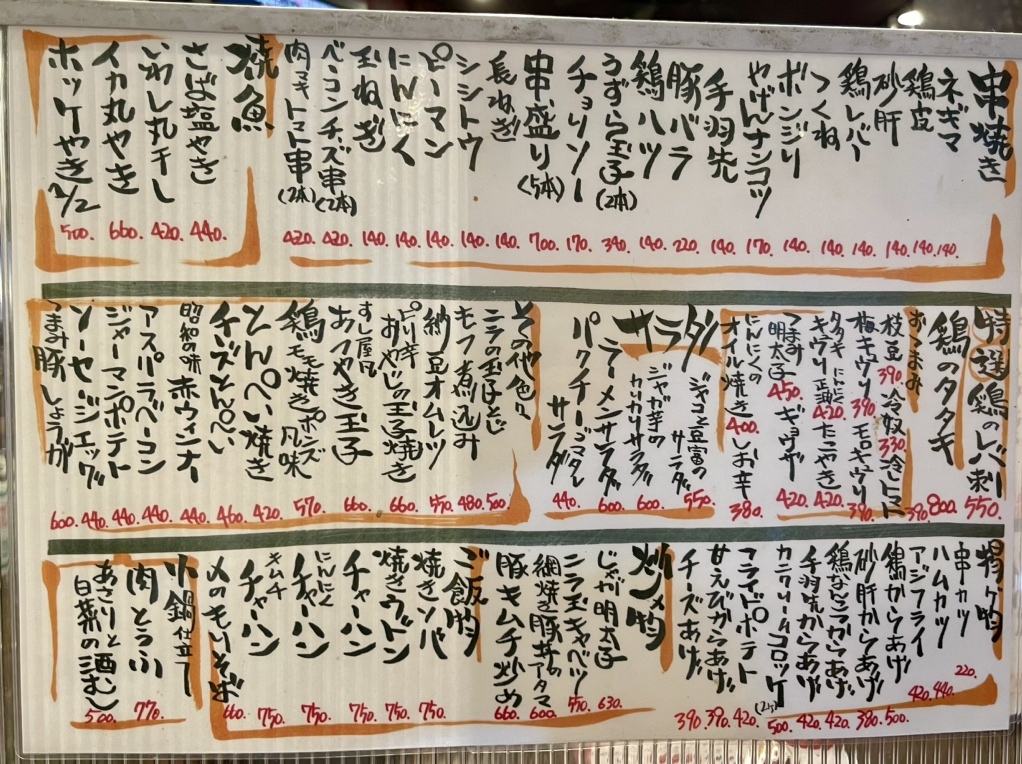 串焼き
ネギマ 140.
鶏皮 140.
砂肝 140.
鶏レバー 140.
つくね 140.
ボンジリ 140.
やげんナンコツ 170.
手羽先 140.
豚バラ 220.
鶏ハツ 140.
うずら玉子(2本) 340.
チョリソー 170.
串盛り(5本) 700.
長ねぎ 140.
シシトウ 140.
ピーマン 140.
にんにく 140.
玉ねぎ 140.
ベーコンチーズ串(2本) 420.
肉マキトマト串(2本) 420.
焼魚
さば塩やき 440.
いわし丸干し 420.
イカ丸やき 660.
ホッケやき1/2 500.
特選鶏のレバ刺 550.
鶏のタタキ 800.
おつまみ
枝豆 390. 冷奴 330. 冷しトマト 390.
梅キウリ 390. モロキュウリ 390.
タタキキウリ 420. たこやき 420.
つまみ明太子 450. ギョウザ 420.
にんにくのオイル焼き 400. しお辛 380.
サラダ
ジャコと豆富のサラダ 550.
ジャガ芋のカリカリサラダ 600.
ラーメンサラダ 600.
パクチーゴマダレサラダ 440.
その他色々
ニラの玉子とじ 500.
モツ煮込み 480.
納豆オムレツ 550.
ピリ辛おやじの玉子焼き 660.
すし屋風おつやき玉子 660.
鶏モモ焼きポンズ風味 570.
とんぺい焼き 420.
チーズとんぺい 460.
昭和の味 赤ウィンナー 440.
アスパラベーコン 440.
ジャーマンポテト 440.
ソーセージエッグ 440.
つまみ豚しょうが 600.
揚げ物
串カツ 220.
ハムカツ 440.
アジフライ 420.
鶏からあげ 500.
砂肝からあげ 380.
鶏なんこつからあげ 420.
手羽先からあげ 420.
カニクリームコロッケ(2コ) 500.
フライドポテト 420.
甘えびからあげ 390.
チーズあげ 390.
炒メ物
じゃが明太子 630.
ニラ玉キャベツ 550.
網焼き豚丼のアタマ 600.
豚キムチ炒め 660.
ご飯物
焼きソバ 750.
焼きウドン 750.
チャーハン 750.
にんにくチャーハン 750.
キムチチャーハン 750.
〆のもりそば 660.
小鍋仕立て
肉とうふ 770.
あさりと白菜の酒むし 500.